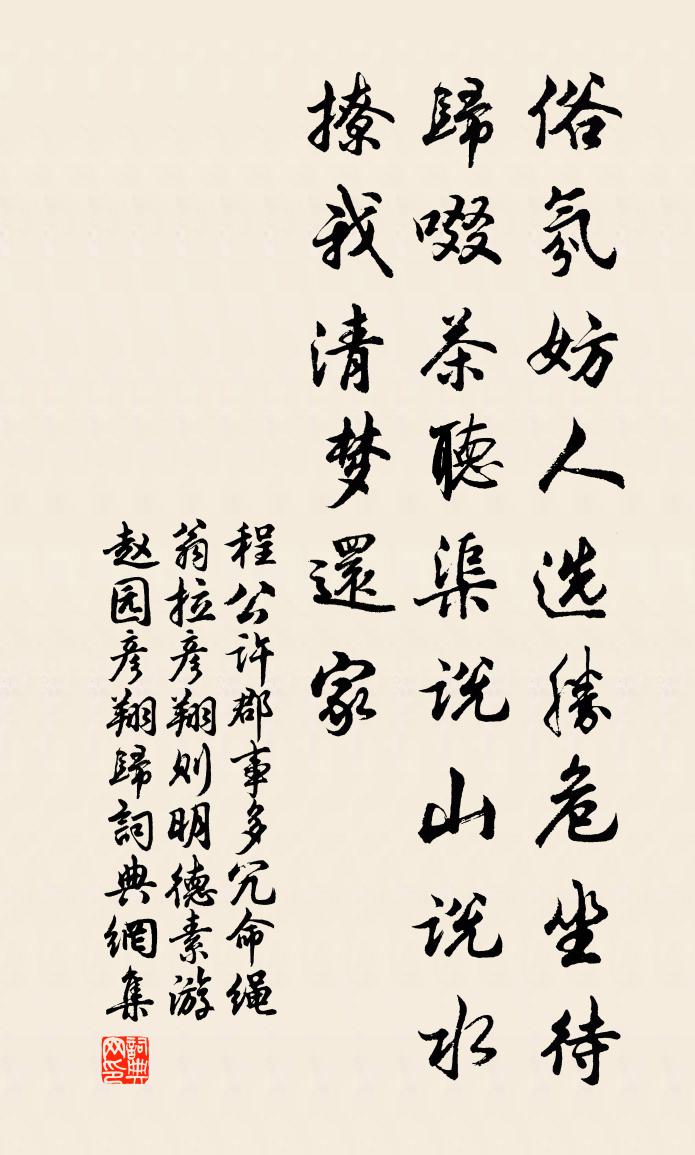 俗氛妨人选勝危坐待
歸啜茶聽渠说山说水
撩我清梦還家
程公许郡事多冗命绳
翁拉彦翔则明德素游
赵园彦翔歸詞典網集
詞典网印